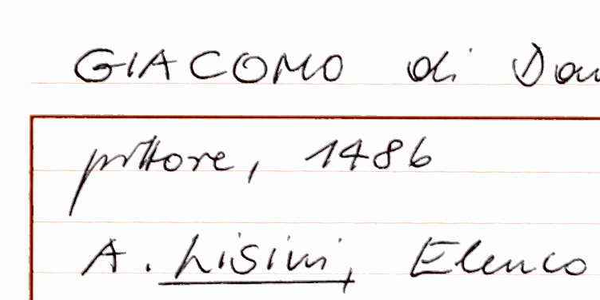 GIACOMO di
pittore, 1486
A. Lisini, Elenco